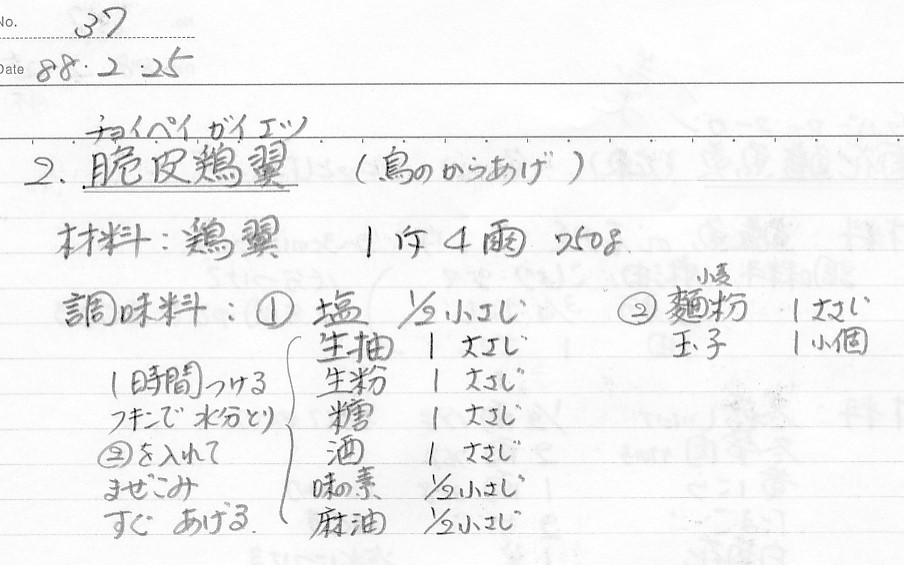 No. 37
Date 88・2・25
チョイペイ ガイ エッ
2. 脆皮鶏翼 (鳥のからあげ)
材料：鶏翼 1斤4両 750g
調味料：① 塩 1/2小さじ
生抽 1 大さじ
生粉 1 大さじ
糖 1 大さじ
酒 1 大さじ
味の素 1/2小さじ
麻油 1/2小さじ
1時間つける
フキンで 水分とり
②を入れて
まぜこみ
すぐ あげる.
小麦
② 麵粉 1 大さじ
玉子 1 小個